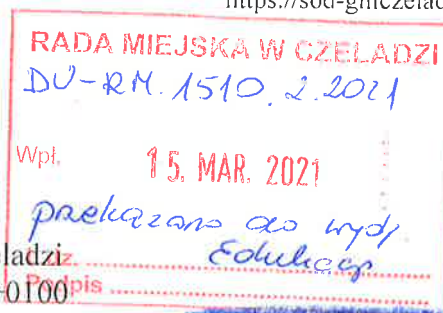 https://sod-gmczelad
RADA MIEJSKA W CZELADZI
DU-RM.1510.2.2021
Wpł. 15. MAR. 2021
przekazano do wydz
Edukacji
eladzi z.
-0100 Podpis